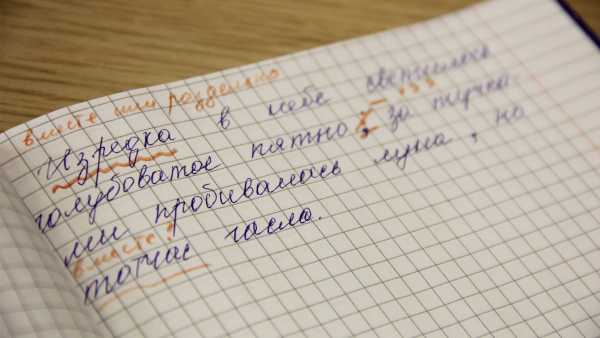 вместе или раздельно
Изредка в небе светилось
голубоватое пятно, за тучка-
ми пробивалась луна, но
вместе!
тотчас гасло.